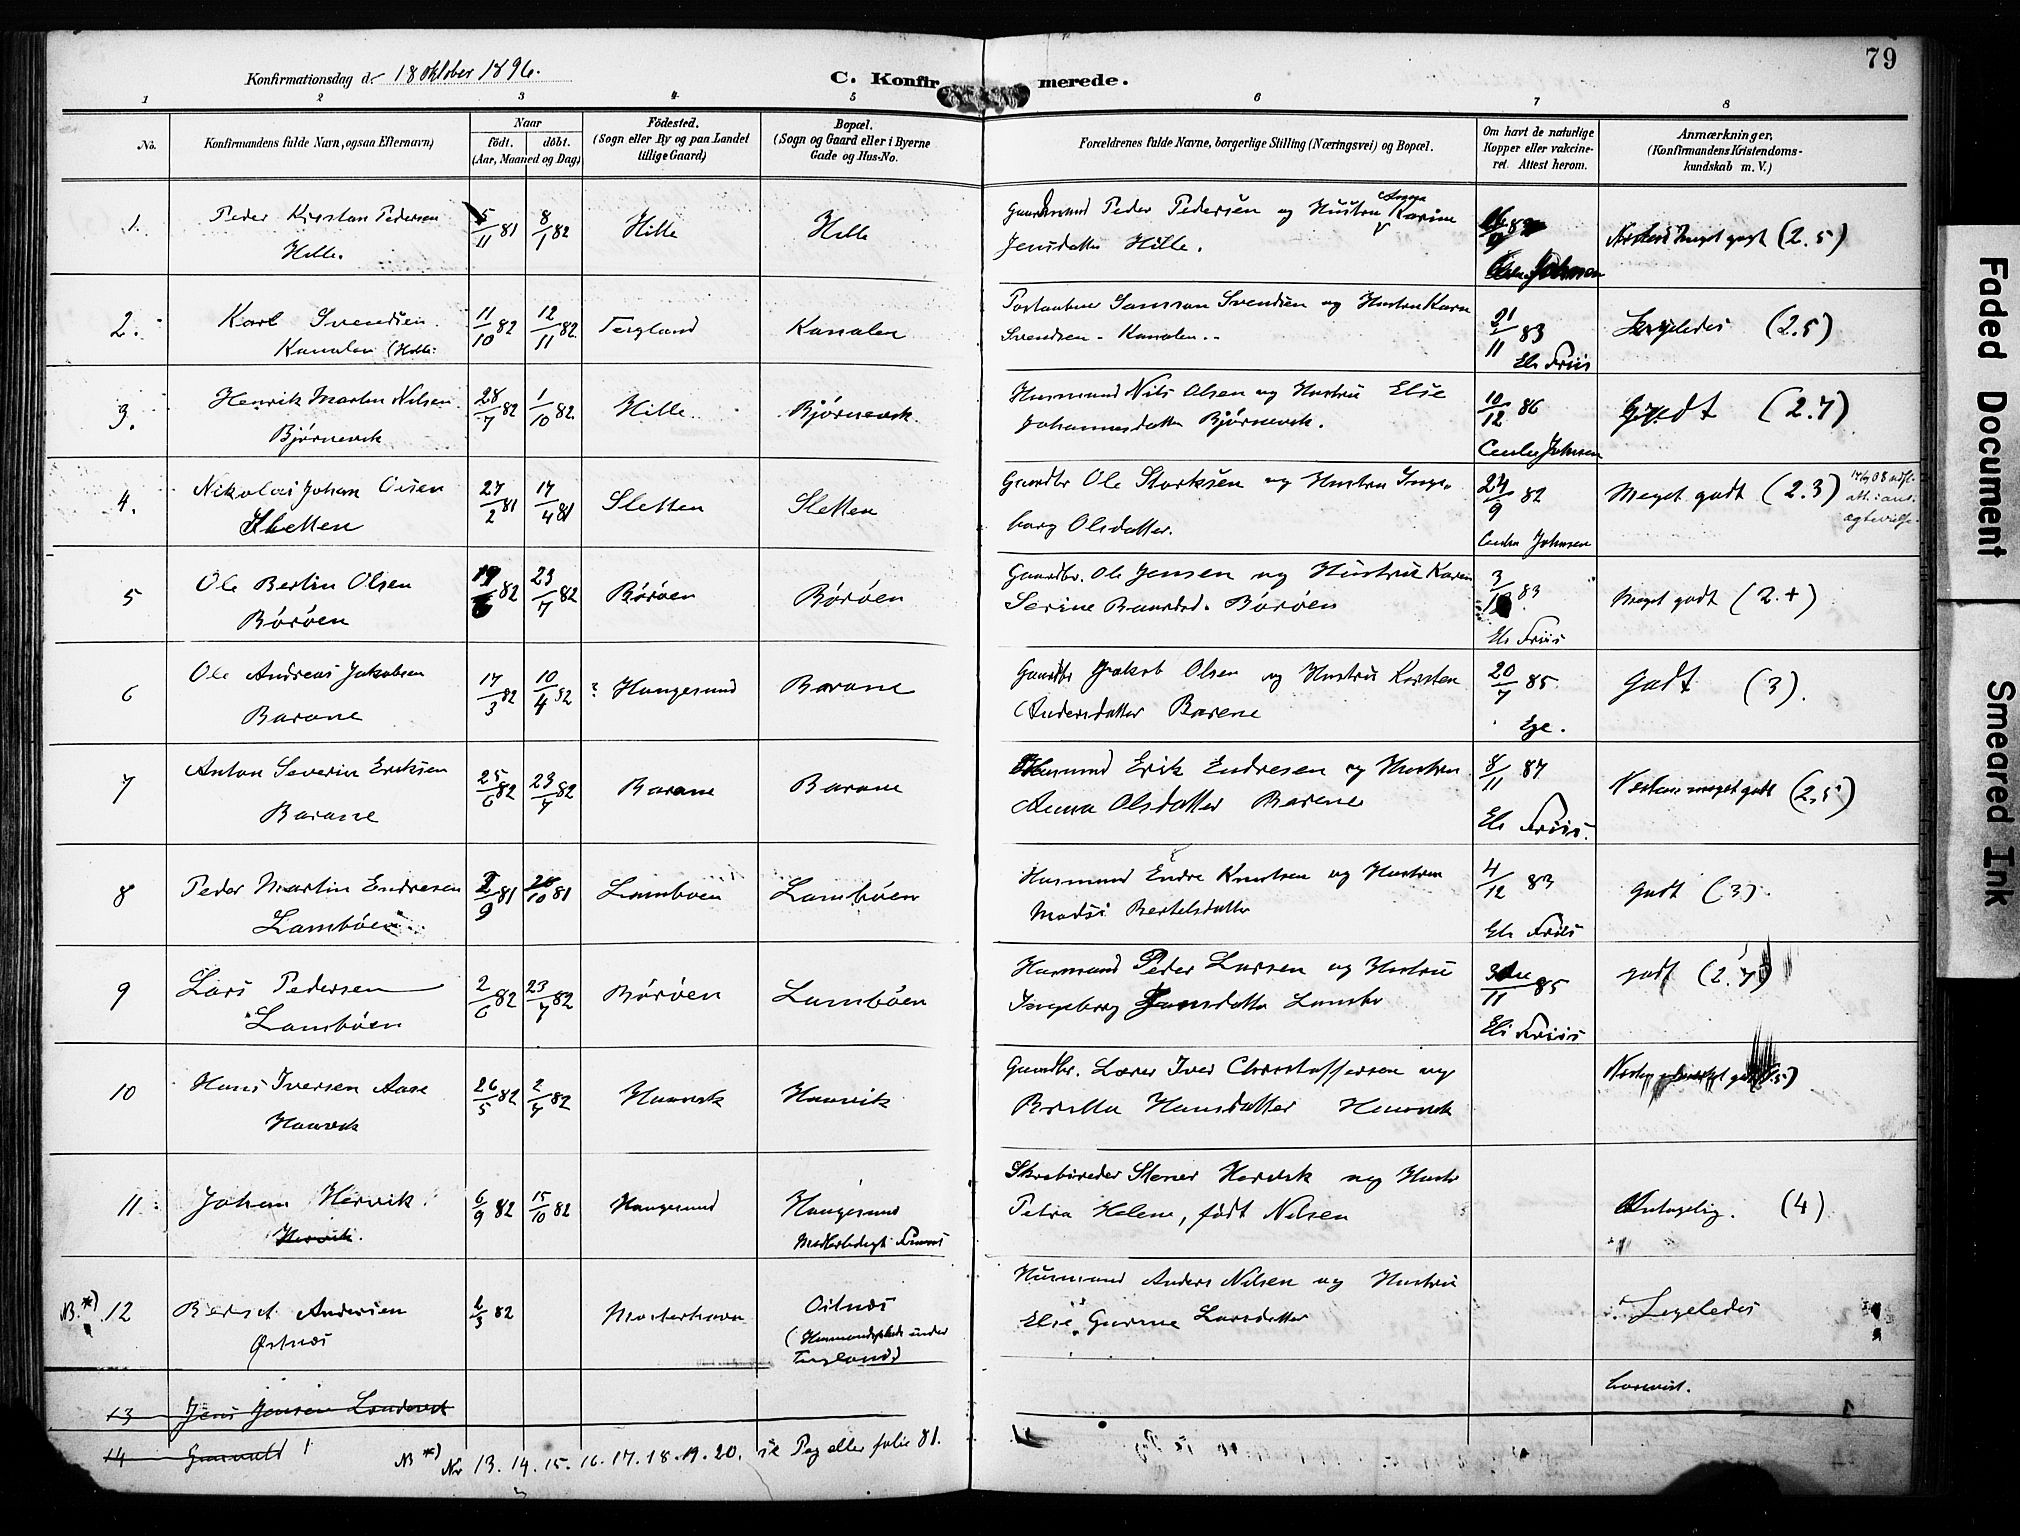 79
Konfirmationsdag d. 18 Oktober 1896.
C. Konfirmerede.
1 2 3 4 5 6 7 8
No.
Konfirmandens fulde Navn, ogsaa Efternavn)
Naar
født. døbt.
(Aar, Maaned og Dag)
Fødested.
(Sogn eller By og paa Landet
tillige Gaard)
Bopæl.
(Sogn og Gaard eller i Byerne
Gade og Hus-No.
Forældrenes fulde Navne, borgerlige Stilling (Næringsvei) og Bopæl.
Om havt de naturlige
Kopper eller vakcine-
ret. Attest herom.
Anmærkninger,
(Konfirmandens Kristendoms-
kundskab m. V.)
1. Peder Kristian Pedersen 5/11 81 8/1 82 Hille Hille Gaardmand Peder Pedersen og Hustru Karine
Hille. Jensdatter Hille. meget godt (2.5)
Johnsen
2. Karl Svendsen 11/10 82 12/11 82 Tergland Kanalen Samson Svendsen og Hustru Karen 21/11 83 (2.5)
Kanalen (Hille. Svendsen - Kanalen. Els Friis
3. Henrik Martin Nilsen 28/7 82 1/10 82 Hille. Bjørnevik. Husmand Nils Olsen og Hustru Else 10/12 86 Godt (2.7)
Bjørnevik Johannesdatter Bjørnevik. Cecilie Johnsen
4. Nikolai Johan Olsen 27/2 81 17/4 81 Sletten Sletten Gaardbr Ole Storksen og Hustru Inge- 24/9 82 Meget godt (2.3)
Sletten borg Olsdatter. Cecilie Johnsen
5 Ole Bertin Olsen 19/6 82 23/7 82 Børøen Børøen Gaardbr. Ole Jensen og Hustru Karen 3/12 83 Meget godt (2.+)
Børøen Serine Baardsd. Børøen Els Friis
6 Ole Andreas Jakobsen 17/3 82 10/4 82 ? Haugesund Barane Gaardbr Jakob Olsen og Hustru Karsten 20/7 85 Godt (3).
Barane Andersdatter Barene Ege.
7 Anton Severin Eriksen 25/6 82 23/7 82 Barane Barane Husmand Erik Endresen og Hustru 8/11 87 Næsten meget godt (2.5)
Barane Anna Olsdatter Barene Els Friis.
8 Peder Martin Endresen 2/9 81 10 81 Lamboen Lambøen Husmand Endre Knutsen og Hustru 4/12 83 godt (3)
Lambøen Madsi Bertelsdatter Els Friis
9 Lars Pedersen 2/6 82 23/7 82 Børøen Lambøen Husmand Peder Larsen og Hustru 11 85 godt (2.7)
Lambøen Ingeborg Els Friis
10 Hans Iversen Aase 26/5 82 2/7 82 Haavik Haavik Gaardbr. Lærer Iver Christoffersen og
Haavik Britta Hansdatter Haavik
11 Johan Hervik. 6/9 82 15/10 82 Haugesund Haugesund Skræder Stener Hervik og Hustr Antagelig. (4)
Hervik. Petra Helene, født Nilsen
NB. *) 12 Berset Andersen 6/3 82 Mosterhavn Ostnes Husmand Anders Nilsen og Hustru Ligeledes
Østnes (Husmandsplads under Else Gurine Larsdatter
Tergland)
13 Jens Jensen
14
NB *) Nr 13. 14. 15. 16. 17. 18. 19. 20. se Pag eller folie 81.
Faded Document
Smeared Ink